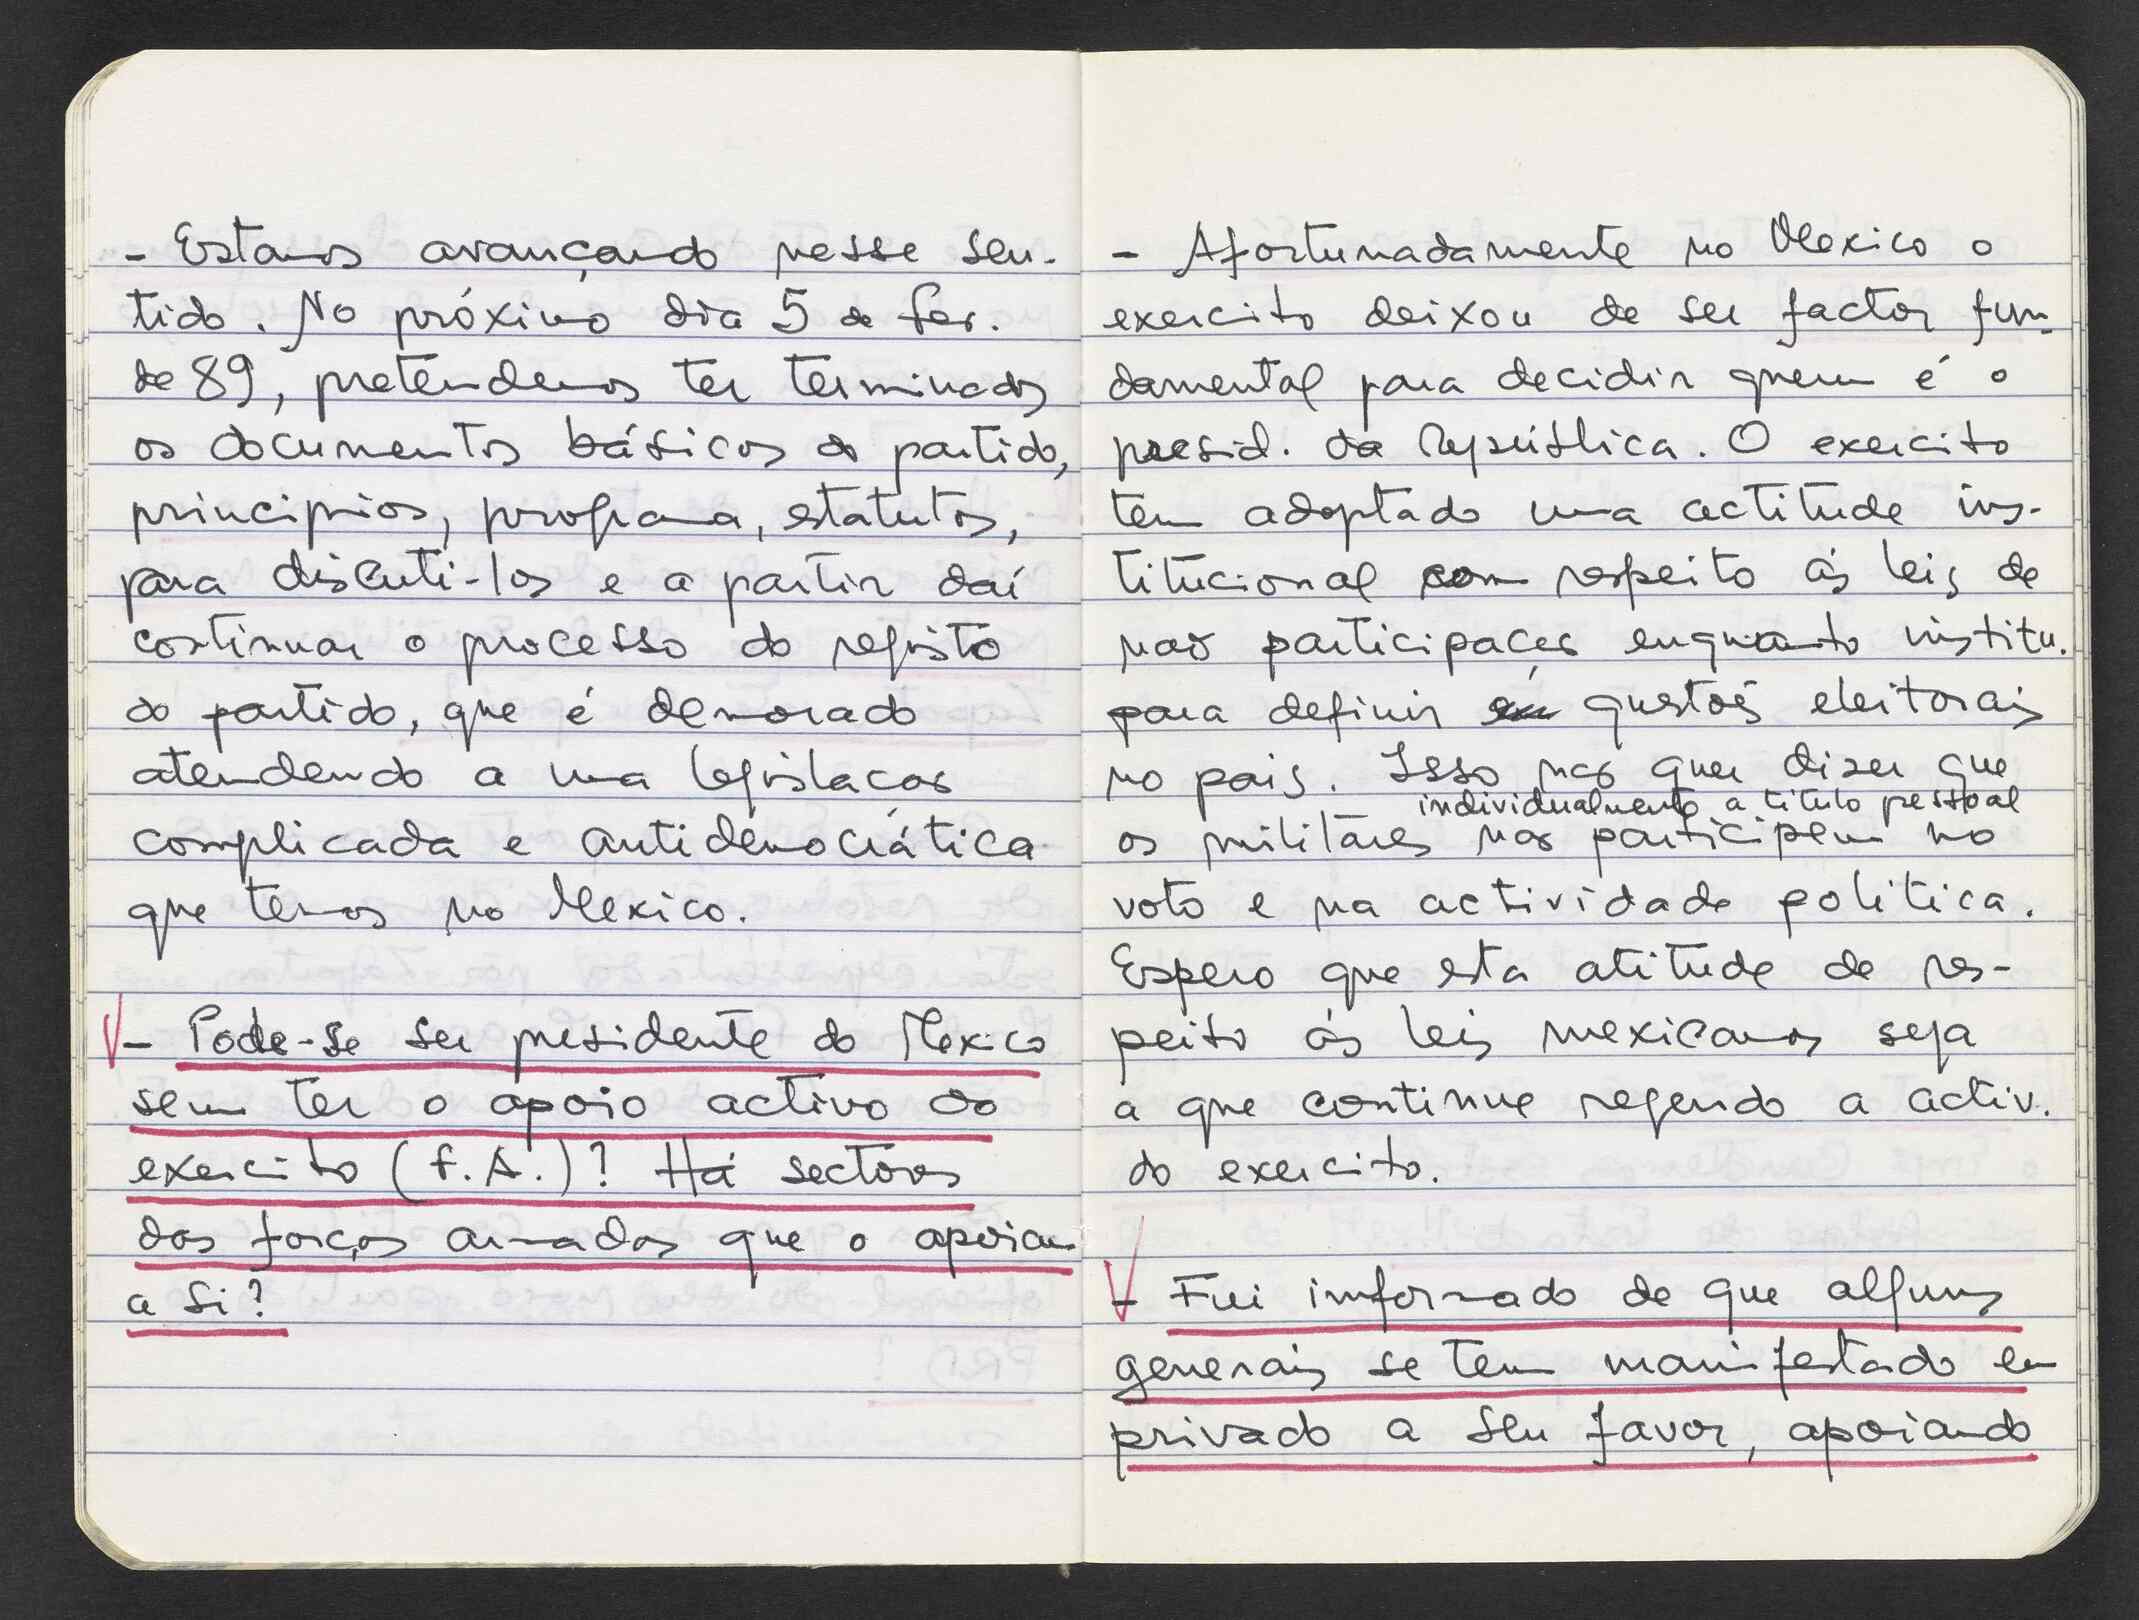 - Estamos avançando nesse sen-
tido. No próximo dia 5 de fev.
de 89, pretendemos ter terminados
os documentos básicos do partido,
principios, programa, estatutos,
para discuti-los e a partir daí
continuar o processo do registo
do partido, que é demorado
atendendo a uma legislacao
complicada e antidemocrática
que temos no Mexico.
- Pode-se ser presidente do Mexico
sem ter o apoio activo do
exercito (F.A.)? Há sectores
das forças armadas que o apoiam
a si?
- Afortunadamente no Mexico o
exercito deixou de ser factor fun-
damental para decidir quem é o
presid. da República. O exercito
tem adoptado uma actitude ins-
titucional com respeito ás leis de
nao participaces enquanto institu.
para definir questoes eleitorais
no pais. Isso nao quer dizer que
individualmente a titulo pessoal
os militares nao participem no
voto e na actividade politica.
Espero que esta atitude de res-
peito ás leis mexicanas seja
a que continue regendo a activ.
do exercito.
- Fui informado de que alguns
generais se tem manifestado em
privado a seu favor, apoiando